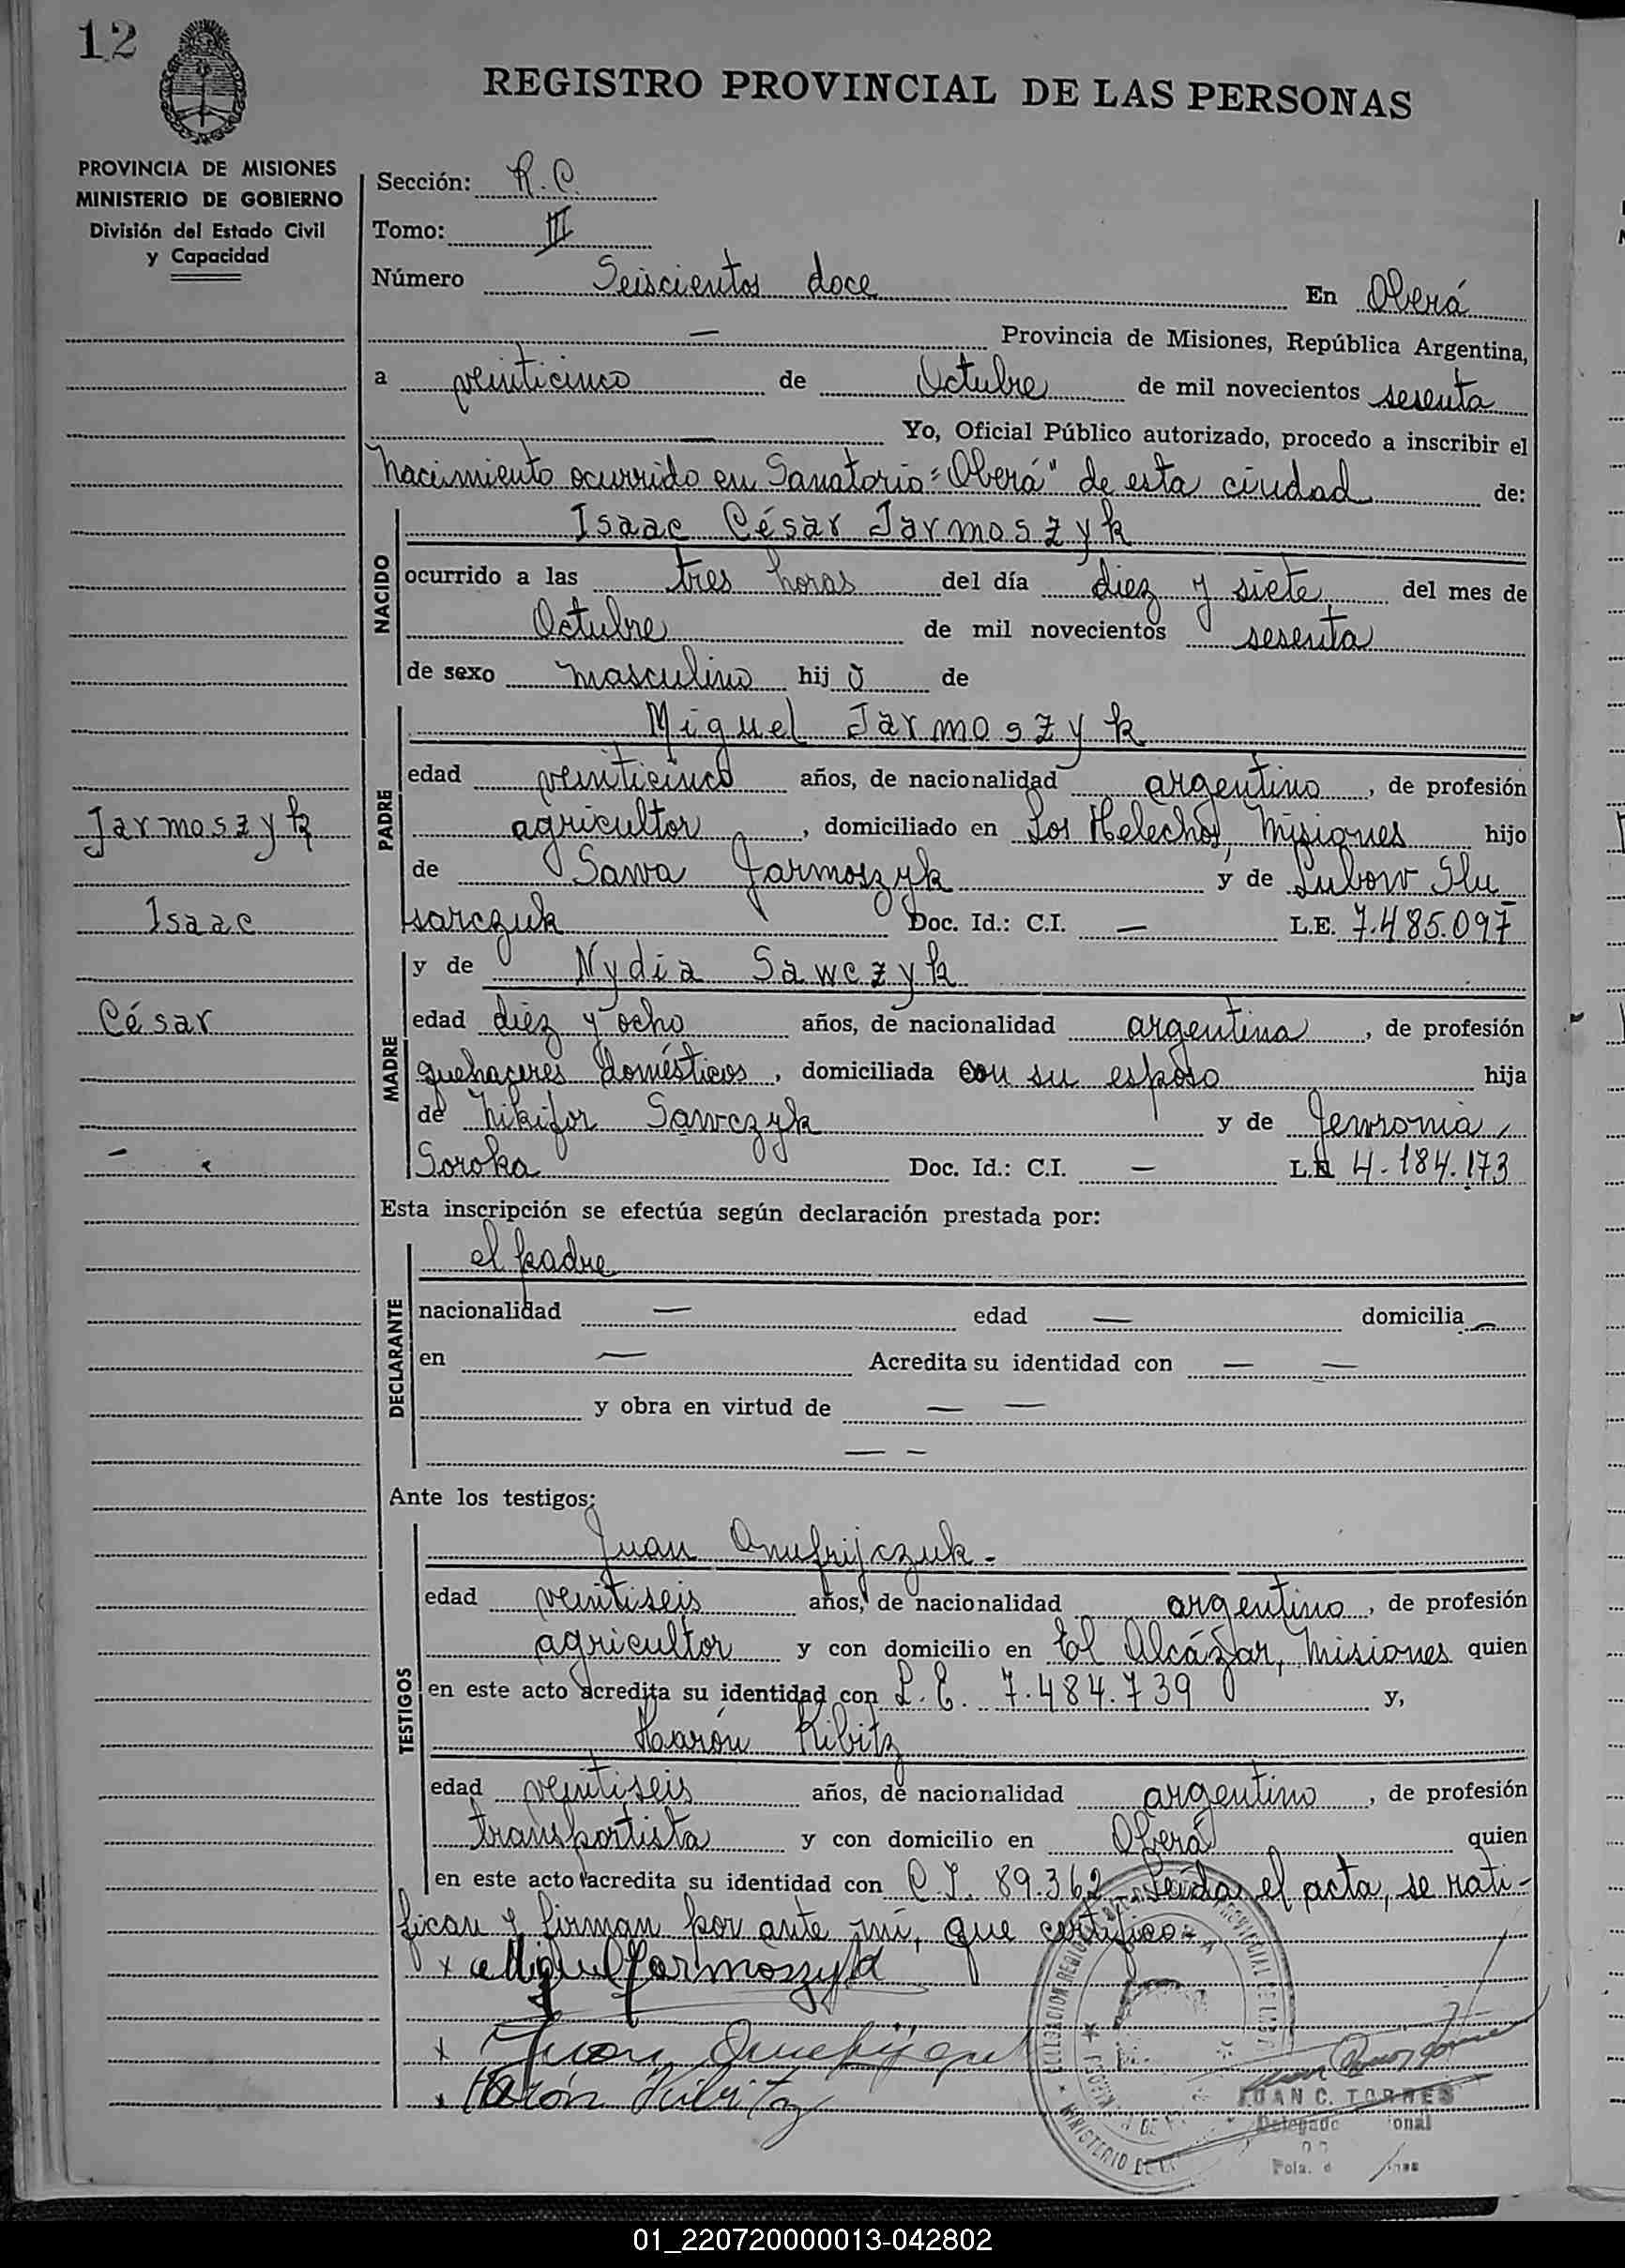 12
REGISTRO PROVINCIAL DE LAS PERSONAS
PROVINCIA DE MISIONES
MINISTERIO DE GOBIERNO
División del Estado Civil
y Capacidad
Sección: R. C.
Tomo: III
Número Seiscientos doce En Oberá
— Provincia de Misiones, República Argentina,
a veinticinco de Octubre de mil novecientos sesenta
— Yo, Oficial Público autorizado, procedo a inscribir el
nacimiento ocurrido en Sanatorio "Oberá" de esta ciudad de:
NACIDO
Isaac César Jarmoszyk
ocurrido a las tres horas del día diez y siete del mes de
Octubre de mil novecientos sesenta
de sexo masculino hijo de
PADRE
Miguel Jarmoszyk
edad veinticinco años, de nacionalidad argentino, de profesión
agricultor, domiciliado en Los Helechos, Misiones hijo
de Sawa Jarmoszyk y de Lubow Slu
sarczuk Doc. Id.: C.I. — L.E. 7.485.097
Jarmoszyk
Isaac
César
MADRE
y de Nydia Sawczyk
edad diez y ocho años, de nacionalidad argentina, de profesión
quehaceres domésticos, domiciliada con su esposo hija
de Nikifor Sawczyk y de Jewronia
Soroka Doc. Id.: C.I. — 4.184.173
Esta inscripción se efectúa según declaración prestada por:
DECLARANTE
el padre
nacionalidad — edad — domicilia —
en — Acredita su identidad con — —
y obra en virtud de — —
— —
Ante los testigos:
TESTIGOS
Juan Onufrijczuk.-
edad veintiseis años, de nacionalidad argentino, de profesión
agricultor y con domicilio en El Alcázar, Misiones quien
en este acto acredita su identidad con L. E. 7.484.739 y,
Harón Kibitz
edad veintiseis años, de nacionalidad argentino, de profesión
transportista y con domicilio en Oberá quien
en este acto acredita su identidad con C. I. 89.362 Leída el acta, se rati-
fican y firman por ante mí, que certifico.-
x Miguel Jarmoszyk
x Juan
x Harón Kibitz
JUAN C. TORRES
01_220720000013-042802